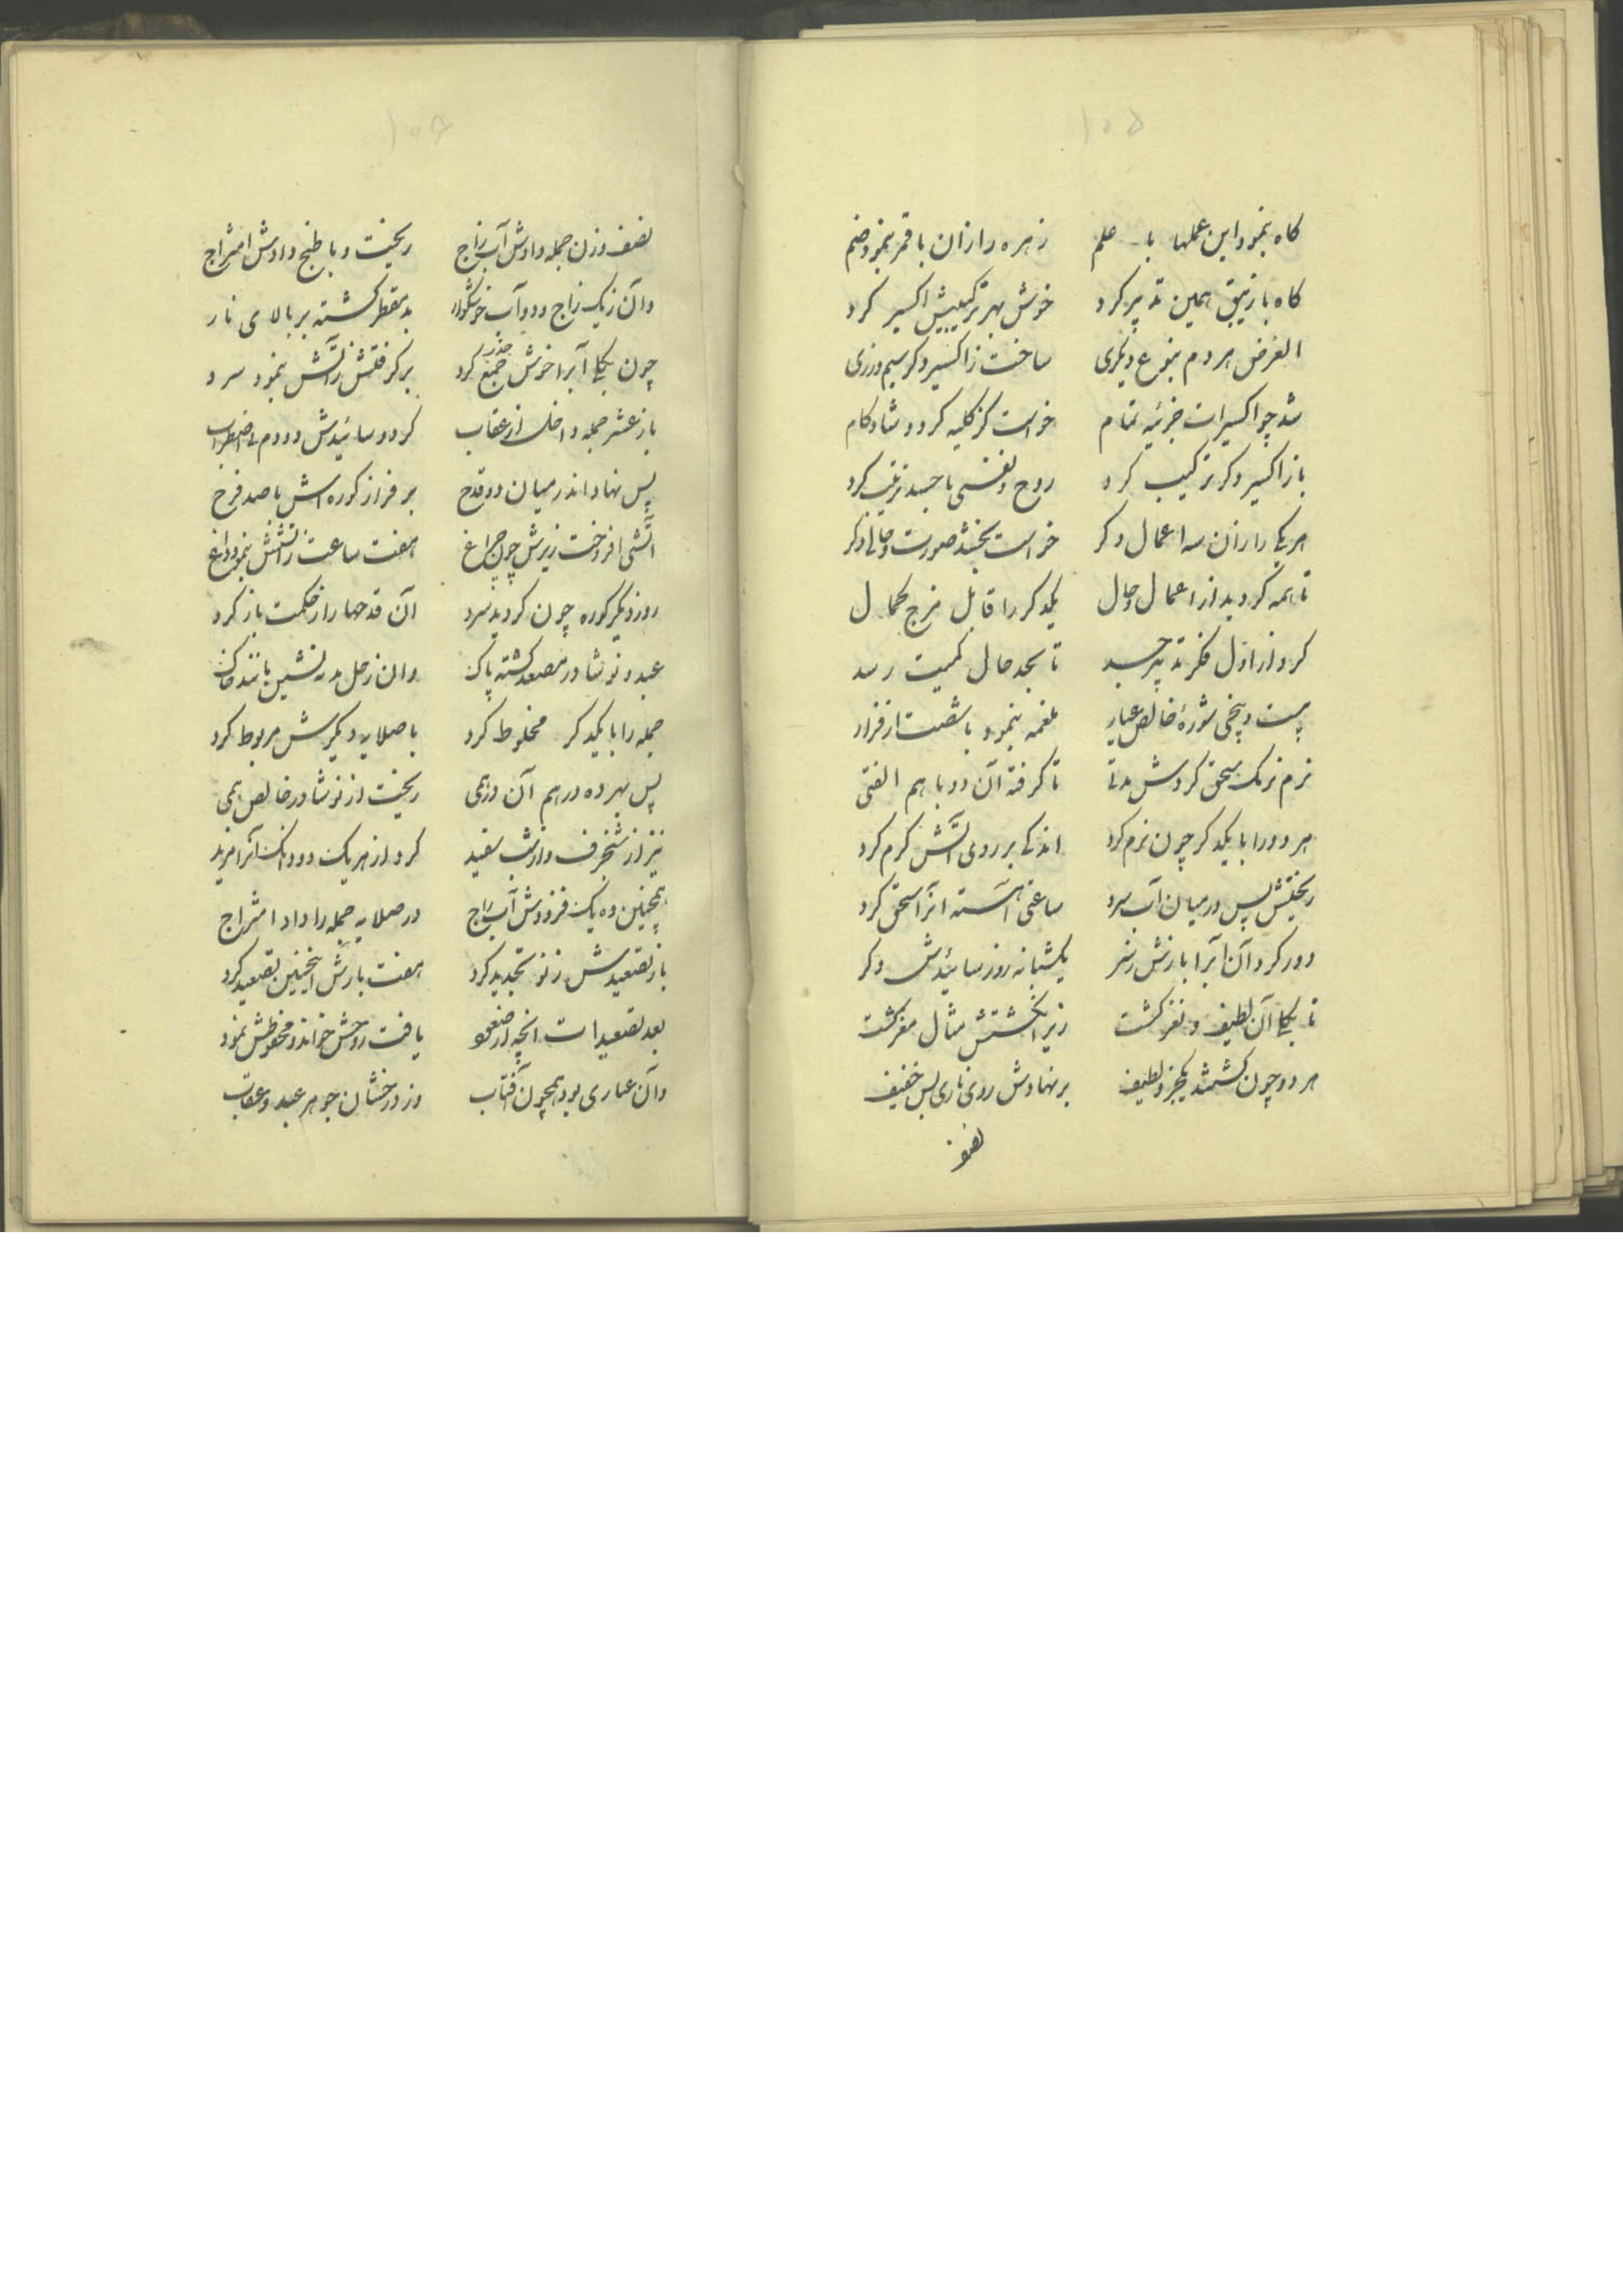 ۱۰۵
کاه بنمود این عملها با علم زهره را زان با قمر بنمود ضم
کاه با زیبق همین تدبیر کرد خوش بهر ترکیبیش اکسیر کرد
الغرض هر دم بنوع دیکری ساخت زاکسیر دکر سیم وزری
شد چو اکسیرات جزئیه تمام خواست کز کلیه کردد شادکام
باز اکسیر دکر ترکیب کرد روح و نفسی با جسد ترتیب کرد
هر یکی را زان سه اعمال دکر خواست بخشد صورت و حالی دکر
تا همه کردید از اعمال و حال یکدکر را قابل مزج کمال
کرد از اول فکر تدبیر جسد تا بحد حال کمیت رسد
بیست و پنجی شورهٔ خالص عیار ملغمه بنمود با شصت از فرار
نرم نرمک سحق کردش مدتی تا کرفته آن دو با هم الفتی
هر دو را با یکدکر چون نرم کرد اندکی بر روی آتش کرم کرد
ریختش پس در میان آب سرد ساعتی آهسته آنرا سحق کرد
دور کرد آن آبرا بازش ز سر یکشبانه روز سائیدش دکر
تا یکی آن لطیف و نغز کشت زیر انکشتش مثال مغز کشت
هر دو چون کشتند یکجزو لطیف بر نهادش روی ناری بس خفیف
نصف
۱۰۶
نصف وزن جمله دادش آب زاج ریخت و با طبخ دادش امتزاج
وان زیک زاج و دو آب خوشکوار بد مقطر کشته بر بالای نار
چون یکی آبرا خوش جمع کرد برکرفتش زآتش بنمود سرد
باز عشر جمله داخل از عقاب کرد و سائیدش دو دم بی اضطراب
پس نهاد اندر میان دو قدح بر فراز کوره اش با صد فرح
آتشی افروخت زیرش چون چراغ هفت ساعت زآتشش بنمود داغ
روز دیکر کوره چون کردید سرد آن قدحها را ز حکمت باز کرد
عبد و نوشادر مصعد کشته پاک وان زحل بد ته نشین مانند خاک
جمله را با یکدکر مخلوط کرد با صلایه دیکرش مربوط کرد
پس بهر ده درهم آن درهمی ریخت از نوشادر خالص همی
نیز از شنجرف و از شب سفید کرد از هر یک دو دانک آنرا مزید
همچنین ده یک فزودش آب زاج در صلایه جمله را داد امتزاج
باز تصعیدش ز نو تجدید کرد هفت بارش اینچنین تصعید کرد
بعد تصعیدات آنچه یافت روحش خواند و محفوظش نمود
وان غباری بود همچون آفتاب وز درخشان جوهر عبد و عقاب